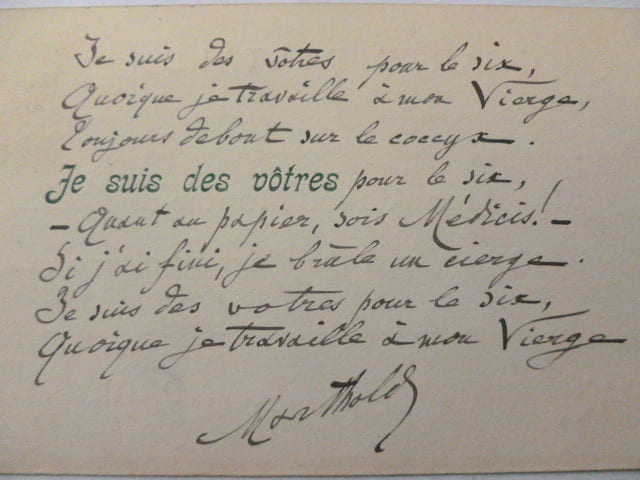 Je suis des vôtres pour le six,
Quoique je travaille à mon Vierge,
Toujours debout sur le coccyx.
Je suis des vôtres pour le six,
– Quant au papier, sois Médicis! –
Si j'ai fini, je brûle un cierge.
Je suis des votres pour le six,
Quoique je travaille à mon Vierge
Marthold